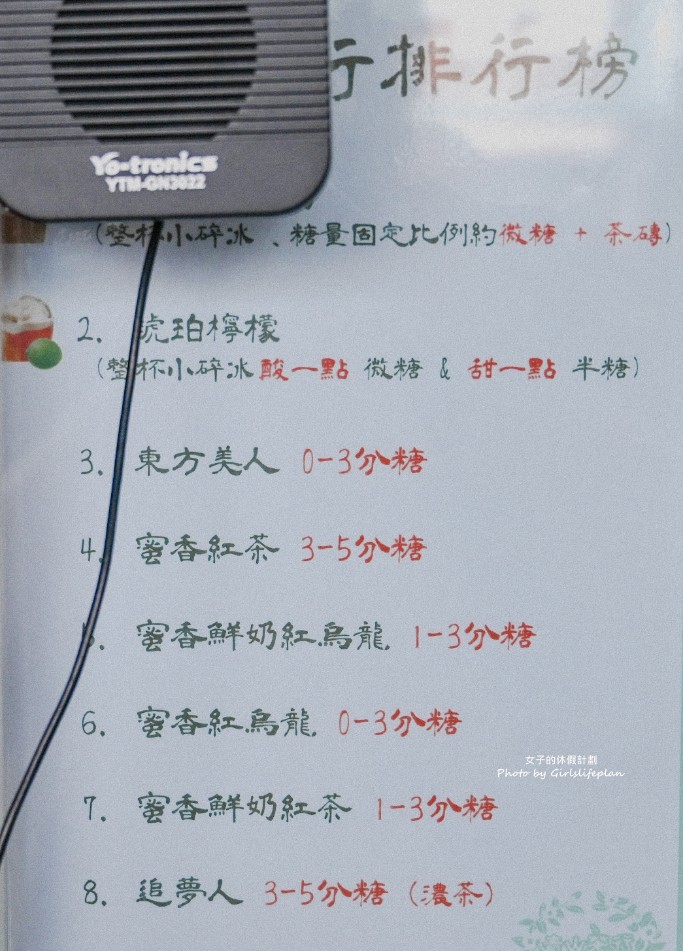 行排行榜
Yo-tronics
YTM-GN3022
(整杯小碎冰、糖量固定比例約微糖 + 茶磚)
2. 琥珀檸檬
(整杯小碎冰酸一點 微糖 & 甜一點 半糖)
3. 東方美人 0-3分糖
4. 蜜香紅茶 3-5分糖
5. 蜜香鮮奶紅烏龍 1-3分糖
6. 蜜香紅烏龍 0-3分糖
女子的休假計劃
Photo by Girlslifeplan
7. 蜜香鮮奶紅茶 1-3分糖
8. 追夢人 3-5分糖 (濃茶)